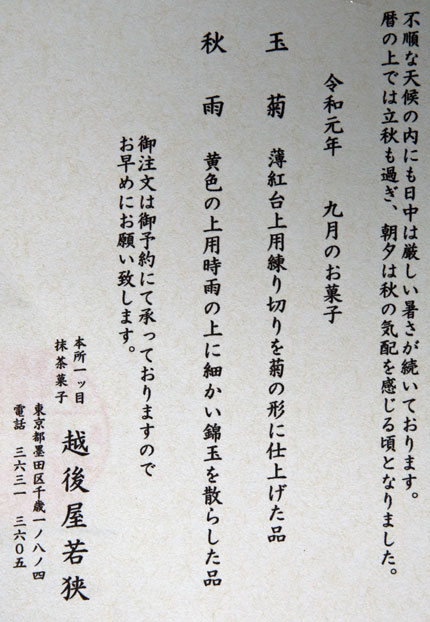 不順な天候の内にも日中は厳しい暑さが続いております。
暦の上では立秋も過ぎ、朝夕は秋の気配を感じる頃となりました。
令和元年 九月のお菓子
玉菊 薄紅台上用練り切りを菊の形に仕上げた品
秋雨 黄色の上用時雨の上に細かい錦玉を散らした品
御注文は御予約にて承っておりますので
お早めにお願い致します。
本所一ッ目
抹茶菓子
越後屋若狭
東京都墨田区千歳一ノ八ノ四
電話 三六三一 三六〇五